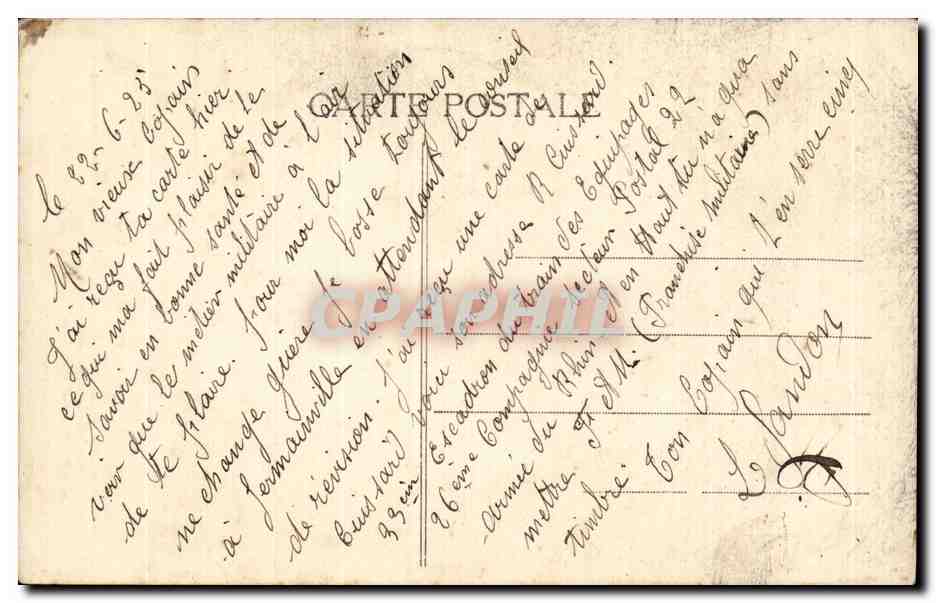 CARTE POSTALE
le 22-6-25
Mon vieux Copain
J'ai reçu ta carte hier
ce qui ma fait plaisir de te
savoir en bonne santé et de
voir que le metier militaire à l'air
de te plaire. Pour moi la situation
ne change guère je bosse toujours
à Germainville en attendant le conseil
de révision. J'ai reçu une carte de
Cuissard voici son adresse R Cuissard.
33èm Escadron du train des Equipages
26ème Compagnie Secteur Postal 22
armée du Rhin et en Haut tu n'a qua
mettre F M. (Franchise militaire) sans
timbre Ton Copain qui t'en serre cinq
L Landon
CPAPHIL